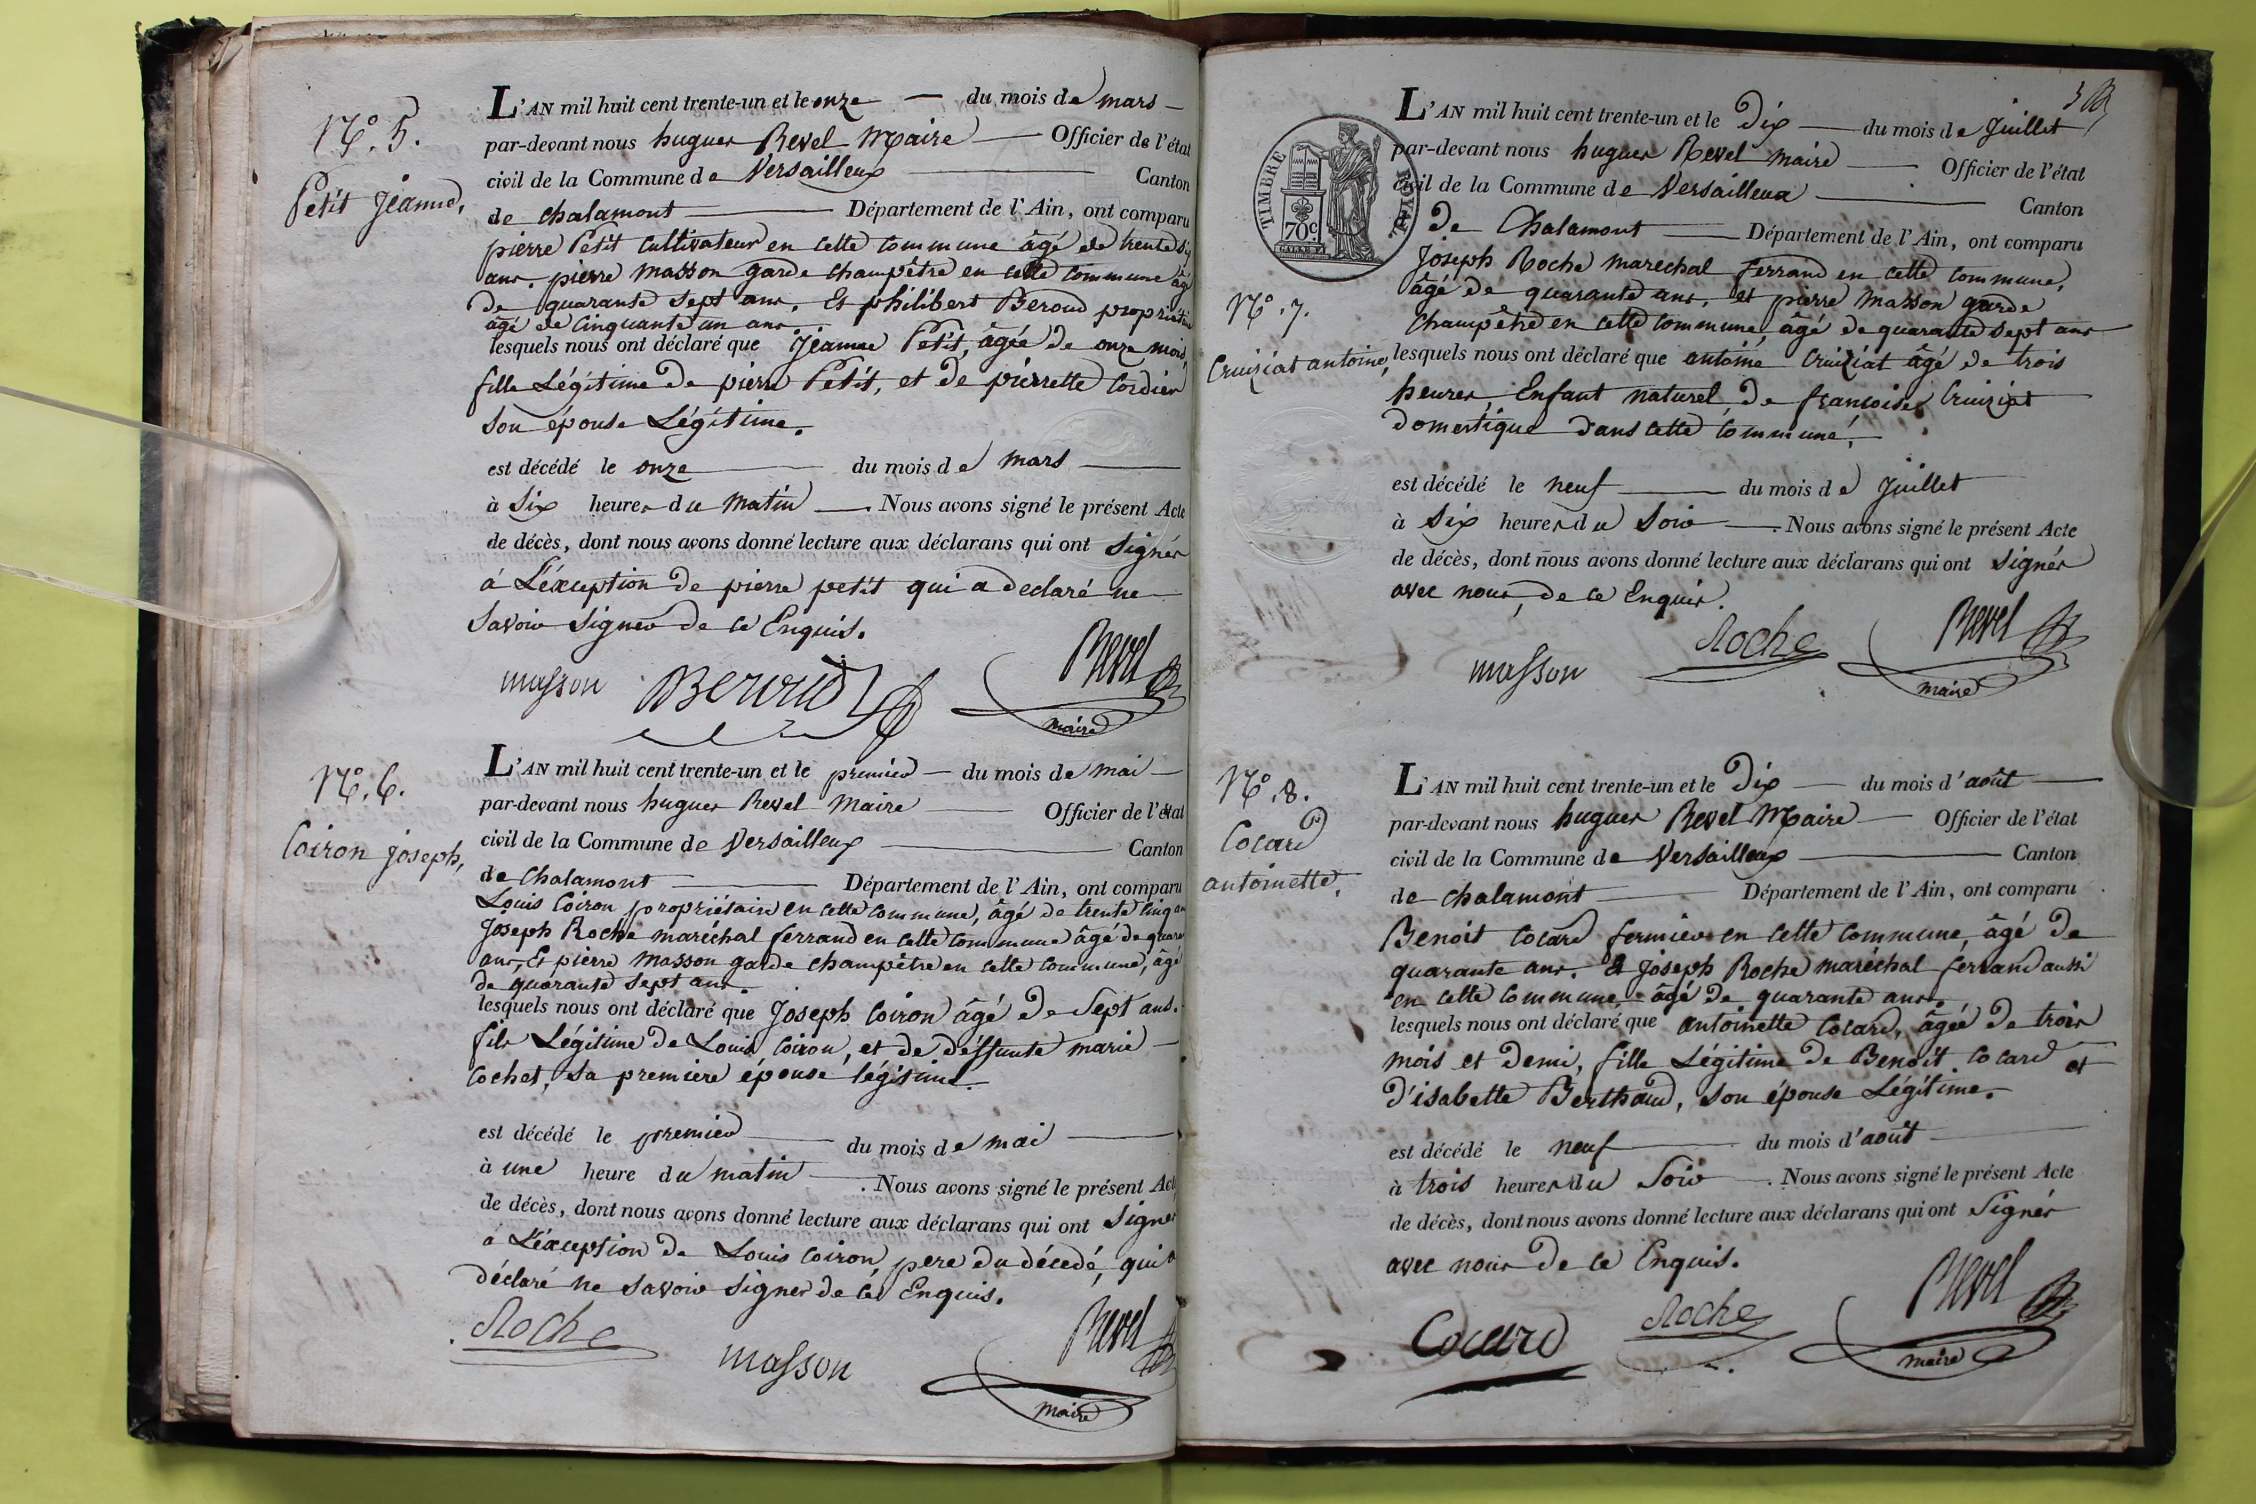 N.° 5.
Petit Jeanne,
L'AN mil huit cent trente-un et le onze du mois de mars
par-devant nous hugues Revel Maire Officier de l'état
civil de la Commune de Versailleux Canton
de chalamont Département de l'Ain, ont comparu
pierre Petit cultivateur en cette commune âgé de trente six
ans. pierre masson garde champêtre en cette commune âgé
de quarante sept ans. Et philibert Beroud propriétaire
âgé de cinquante un ans
lesquels nous ont déclaré que Jeanne Petit, âgée de onze mois,
fille Légitime de pierre Petit, et de pierrette Cordier
son épouse Légitime.
est décédé le onze du mois de mars
à six heures du matin. Nous avons signé le présent Acte
de décès, dont nous avons donné lecture aux déclarans qui ont signés
à L'éxception de pierre petit qui a declaré ne
savoir signer de ce Enquis.
masson Beroud Revel
maire
N.° 6.
Coiron joseph,
L'AN mil huit cent trente-un et le premier du mois de mai
par-devant nous hugues Revel Maire Officier de l'état
civil de la Commune de Versailleux Canton
de chalamont Département de l'Ain, ont comparu
Louis Coiron propriétaire en cette commune, âgé de trente cinq ans
Joseph Roche maréchal ferrand en cette commune âgé de quarante
ans, Et pierre masson garde champêtre en cette commune, âgé
de quarante sept ans
lesquels nous ont déclaré que Joseph Coiron âgé de Sept ans.
fils Légitime de Louis Coiron, et de deffunte marie
Cochet, sa premiere épouse légitime.
est décédé le premier du mois de mai
à une heure du matin. Nous avons signé le présent Acte
de décès, dont nous avons donné lecture aux déclarans qui ont signés
à L'éxception de Louis Coiron, pere du décedé, qui a
déclaré ne savoir signer de ce Enquis.
Roche masson Revel
maire
3
TIMBRE ROYAL
70c
N.° 7.
Cruiziat antoine,
L'AN mil huit cent trente-un et le Dix du mois de Juillet
par-devant nous hugues Revel maire Officier de l'état
civil de la Commune de Versailleux Canton
de Chalamont Département de l'Ain, ont comparu
Joseph Roche marechal ferrand en cette commune,
âgé de quarante ans. et pierre masson garde
champêtre en cette commune, âgé de quarante sept ans
lesquels nous ont déclaré que antoine Cruiziat âgé de trois
heures, Enfant naturel, de françoise Cruiziat
domestique dans cette commune,
est décédé le neuf du mois de Juillet
à six heures du soir. Nous avons signé le présent Acte
de décès, dont nous avons donné lecture aux déclarans qui ont signés
avec nous, de ce Enquis.
masson Roche Revel
maire
N.° 8.
Cocard
antoinette,
L'AN mil huit cent trente-un et le Dix du mois d'août
par-devant nous hugues Revel Maire Officier de l'état
civil de la Commune de Versailleux Canton
de chalamont Département de l'Ain, ont comparu
Benoit Cocard fermier en cette commune, âgé de
quarante ans. Et Joseph Roche maréchal ferrand aussi
en cette commune, âgé de quarante ans,
lesquels nous ont déclaré que antoinette Cocard, âgée de trois
mois et demi, fille Légitime de Benoit Cocard et
d'isabette Berthaud, son épouse Légitime.
est décédé le neuf du mois d'août
à trois heures du Soir. Nous avons signé le présent Acte
de décès, dont nous avons donné lecture aux déclarans qui ont Signés
avec nous de ce Enquis.
Cocard Roche Revel
maire